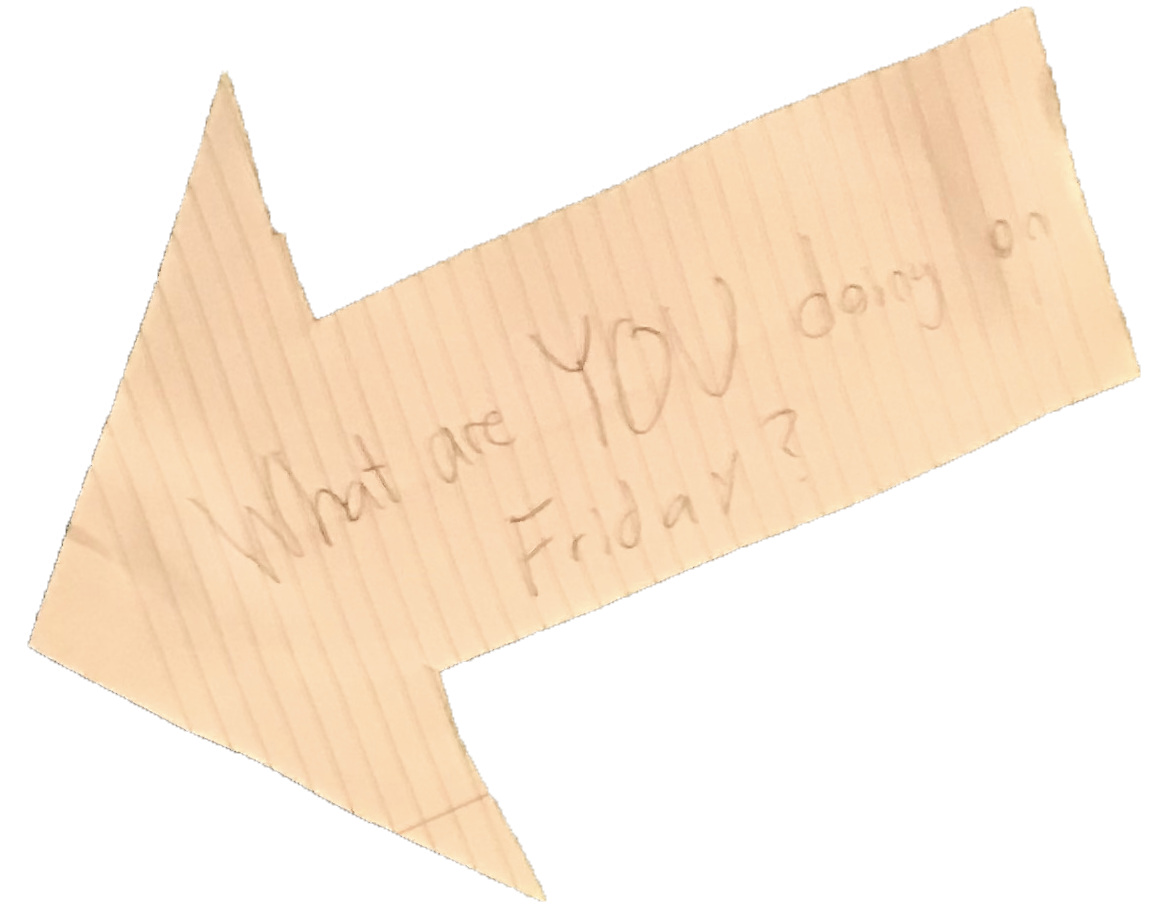 What are YOU doing on
Friday?